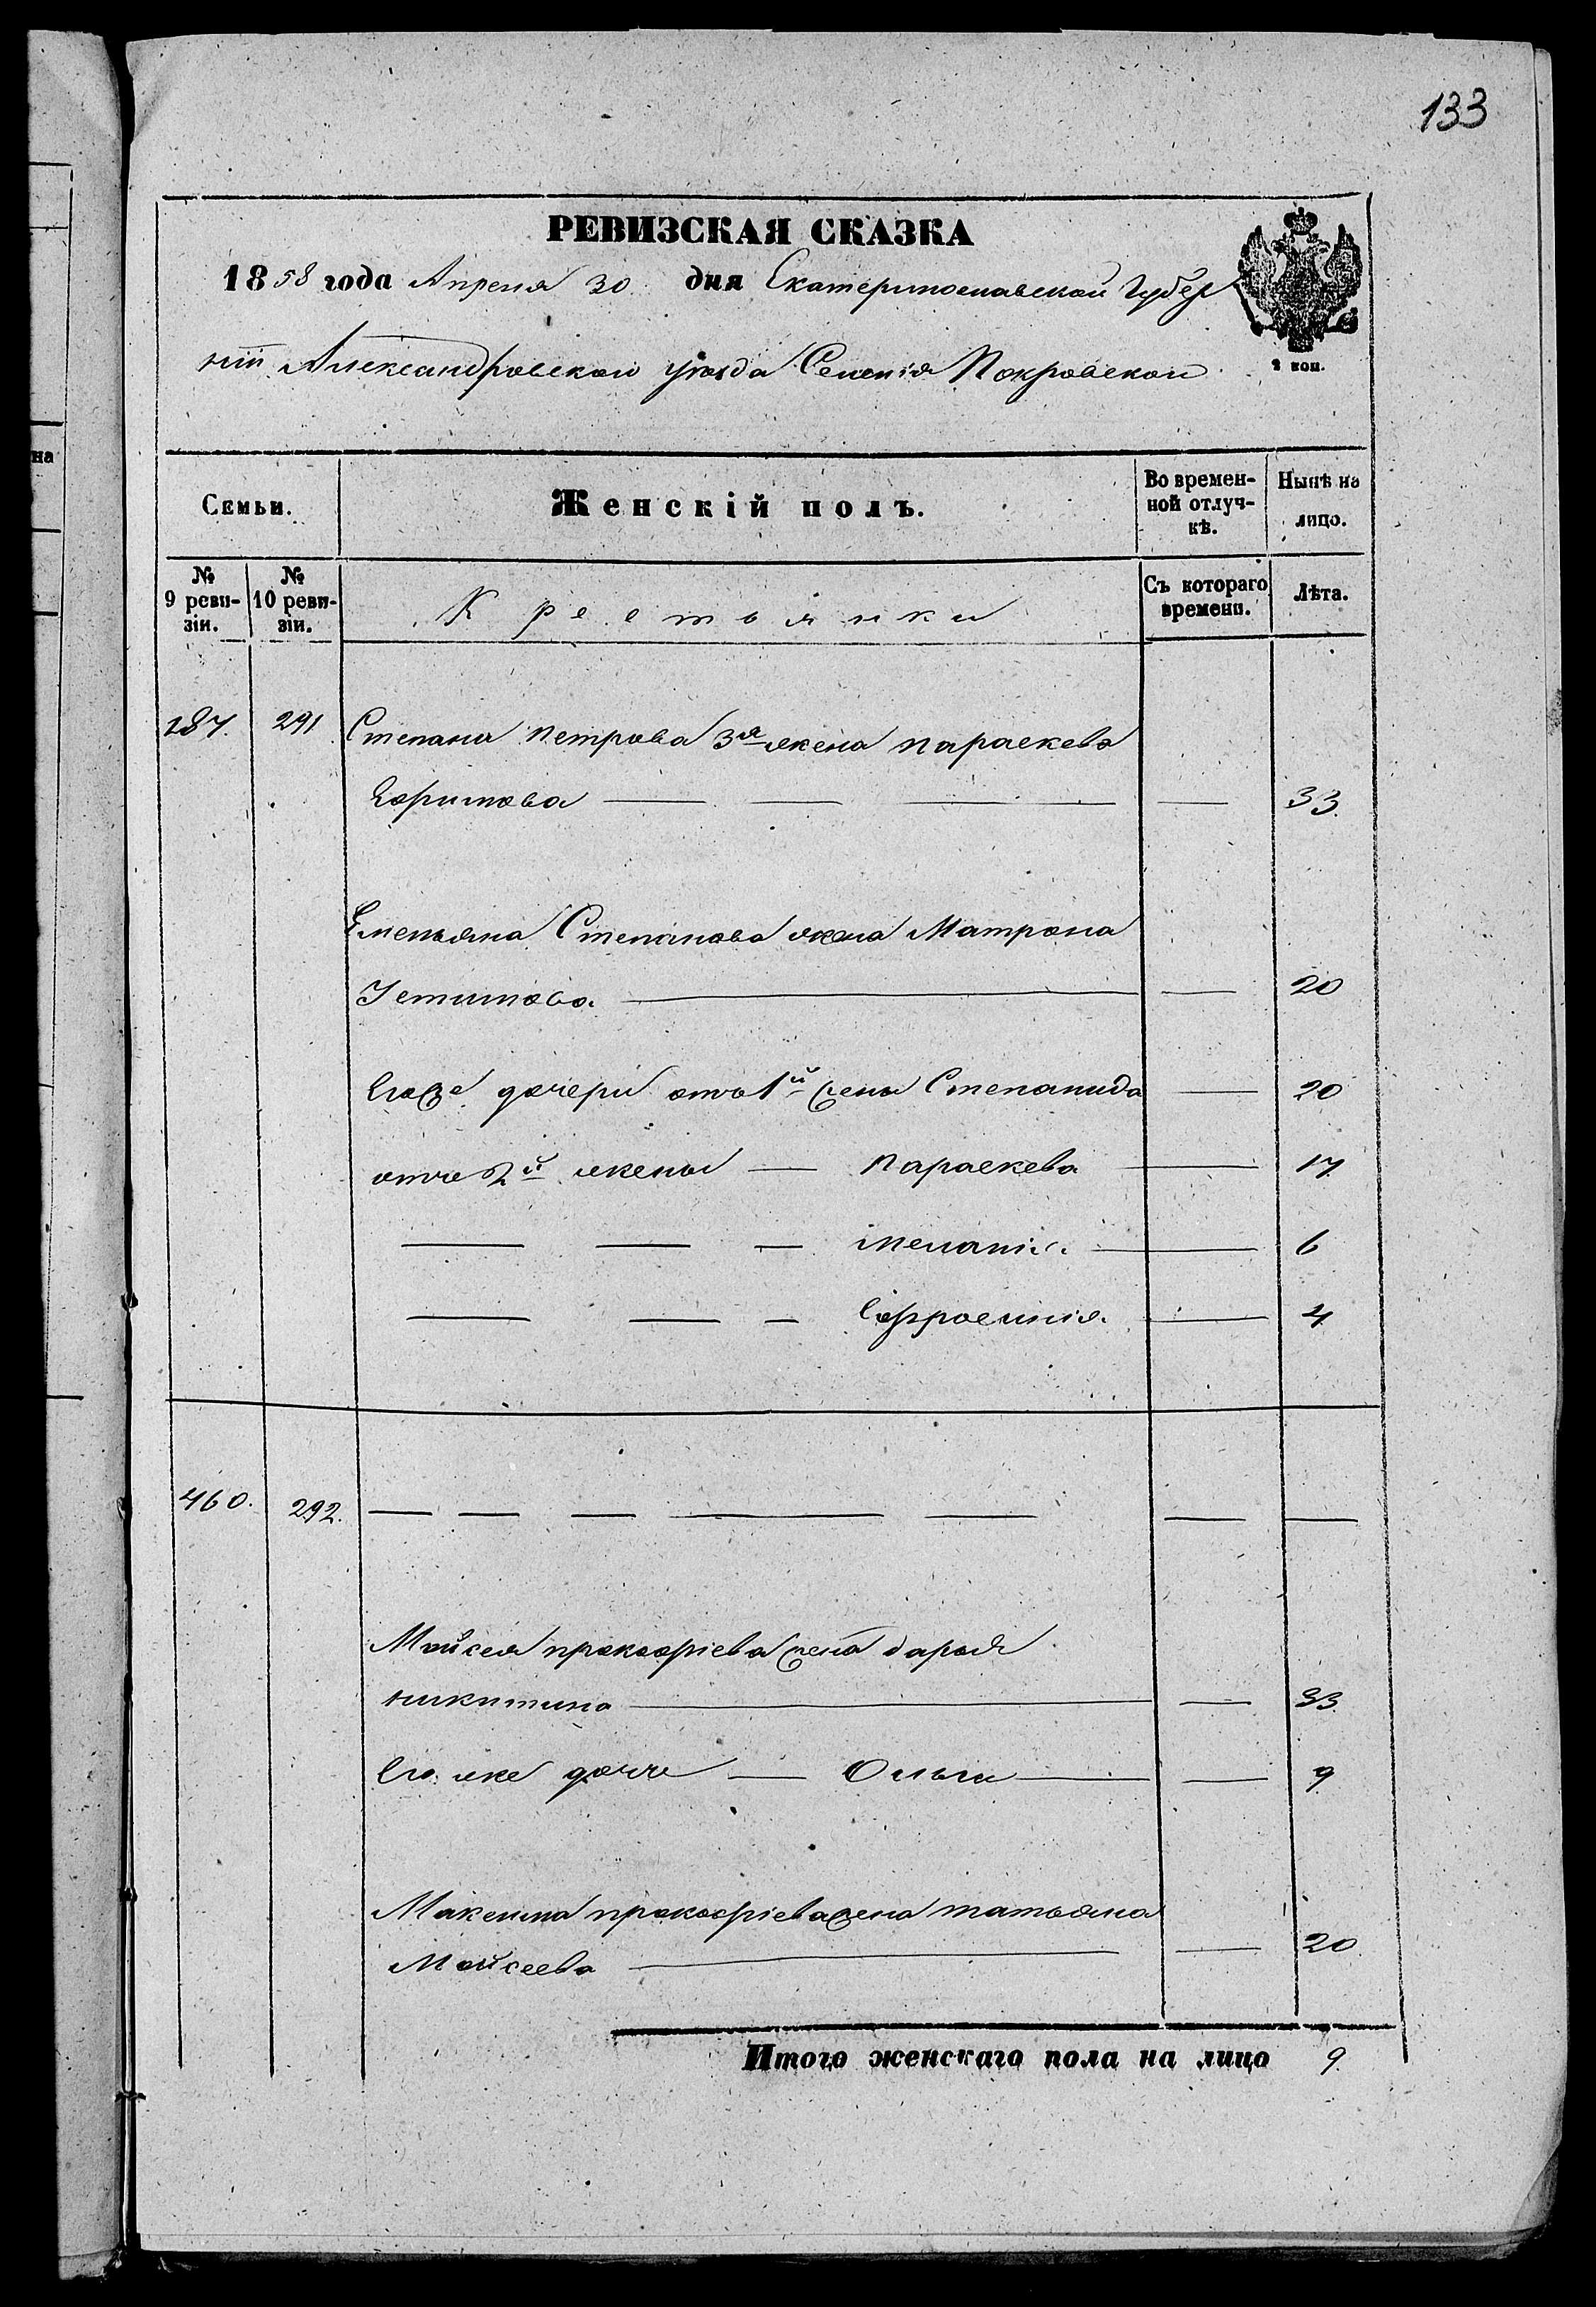 133
РЕВИЗСКАЯ СКАЗКА
1858 года Апреля 30 дня Екатеринославской Губер
нии Александровского уезда Селения Покровского
2 коп.
на
Семьи.
Женскій полъ.
Во времен-
ной отлуч-
кѣ.
Нынѣ на
лицо.
№
9 реви-
зіи.
№
10 реви-
зіи.
Крестьянки
Съ котораго
времени.
Лѣта.
287. 291 Степана Петрова 3я жена Параскева
— — — — 33.
Емельяна Степанова жена Матрона
Устимова — — 20
Егоже дочери отъ 1й жены Степанида — 20
отъ 2й жены — Параскева — 17
— — — Меланія — 6
— — — Ефросинія — 4
460. 292. — — — — — — —
Мойсея прокофіева жена дарья
никитина — — 33
Его же дочь — Ольга — — 9
Максима прокофіева жена татьяна
Мойсеева — — 20
Итого женскаго пола на лицо 9.